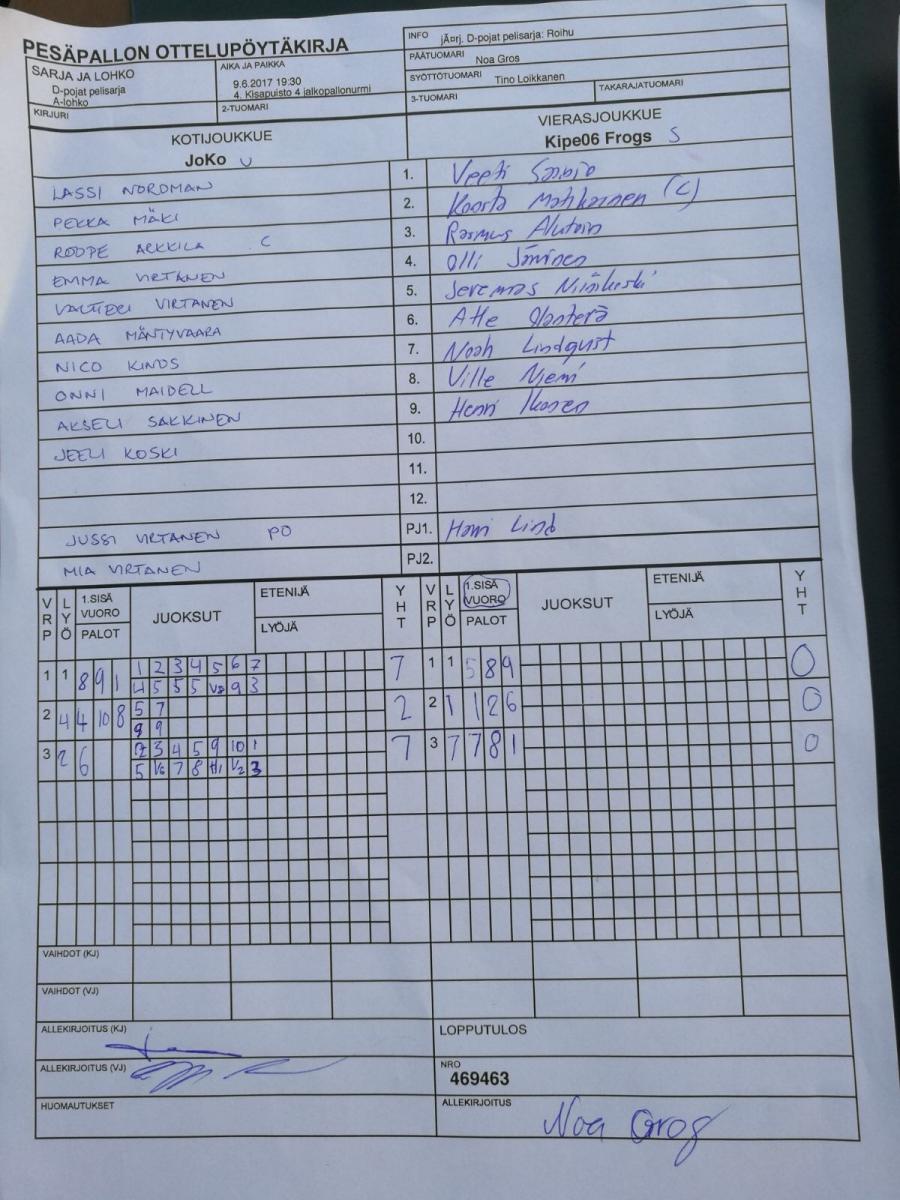 PESÄPALLON OTTELUPÖYTÄKIRJA
SARJA JA LOHKO
D-pojat pelisarja
A-lohko
KIRJURI
AIKA JA PAIKKA
9.6.2017 19:30
4. Kisapuisto 4 jalkopallonurmi
2-TUOMARI
INFO jÃ¤rj. D-pojat pelisarja: Roihu
PÄÄTUOMARI Noa Gros
SYÖTTÖTUOMARI Tino Loikkanen
3-TUOMARI TAKARAJATUOMARI
KOTIJOUKKUE
JoKo U
VIERASJOUKKUE
Kipe06 Frogs S
LASSI NORDMAN 1. Veeti
PEKKA MÄKI 2. Kaarto (C)
ROOPE ARKKILA C 3. Rasmus
EMMA VIRTANEN 4. Olli
VALTTERI VIRTANEN 5. Jeremias
AADA MÄNTYVAARA 6. Atte
NICO KINOS 7. Noah Lindqust
ONNI MAIDELL 8. Ville Niemi
AKSELI SAKKINEN 9. Henri Ikonen
JEELI KOSKI 10.
11.
12.
JUSSI VIRTANEN PO PJ1. Harri Lind
MIA VIRTANEN PJ2.
VRP LYÖ 1.SISÄ VUORO PALOT JUOKSUT ETENIJÄ LYÖJÄ YHT VRP LYÖ 1.SISÄ VUORO PALOT JUOKSUT ETENIJÄ LYÖJÄ YHT
1 1 8 9 1 1 2 3 4 5 6 7 7 1 1 5 8 9 0
4 5 5 5 9 3
2 4 4 10 8 5 7 2 2 1 1 2 6 0
9 9
3 2 6 2 3 4 5 9 10 1 7 3 7 7 8 1 0
5 7 8 3
VAIHDOT (KJ)
VAIHDOT (VJ)
ALLEKIRJOITUS (KJ) LOPPUTULOS
ALLEKIRJOITUS (VJ) NRO
469463
HUOMAUTUKSET ALLEKIRJOITUS
Noa Gros